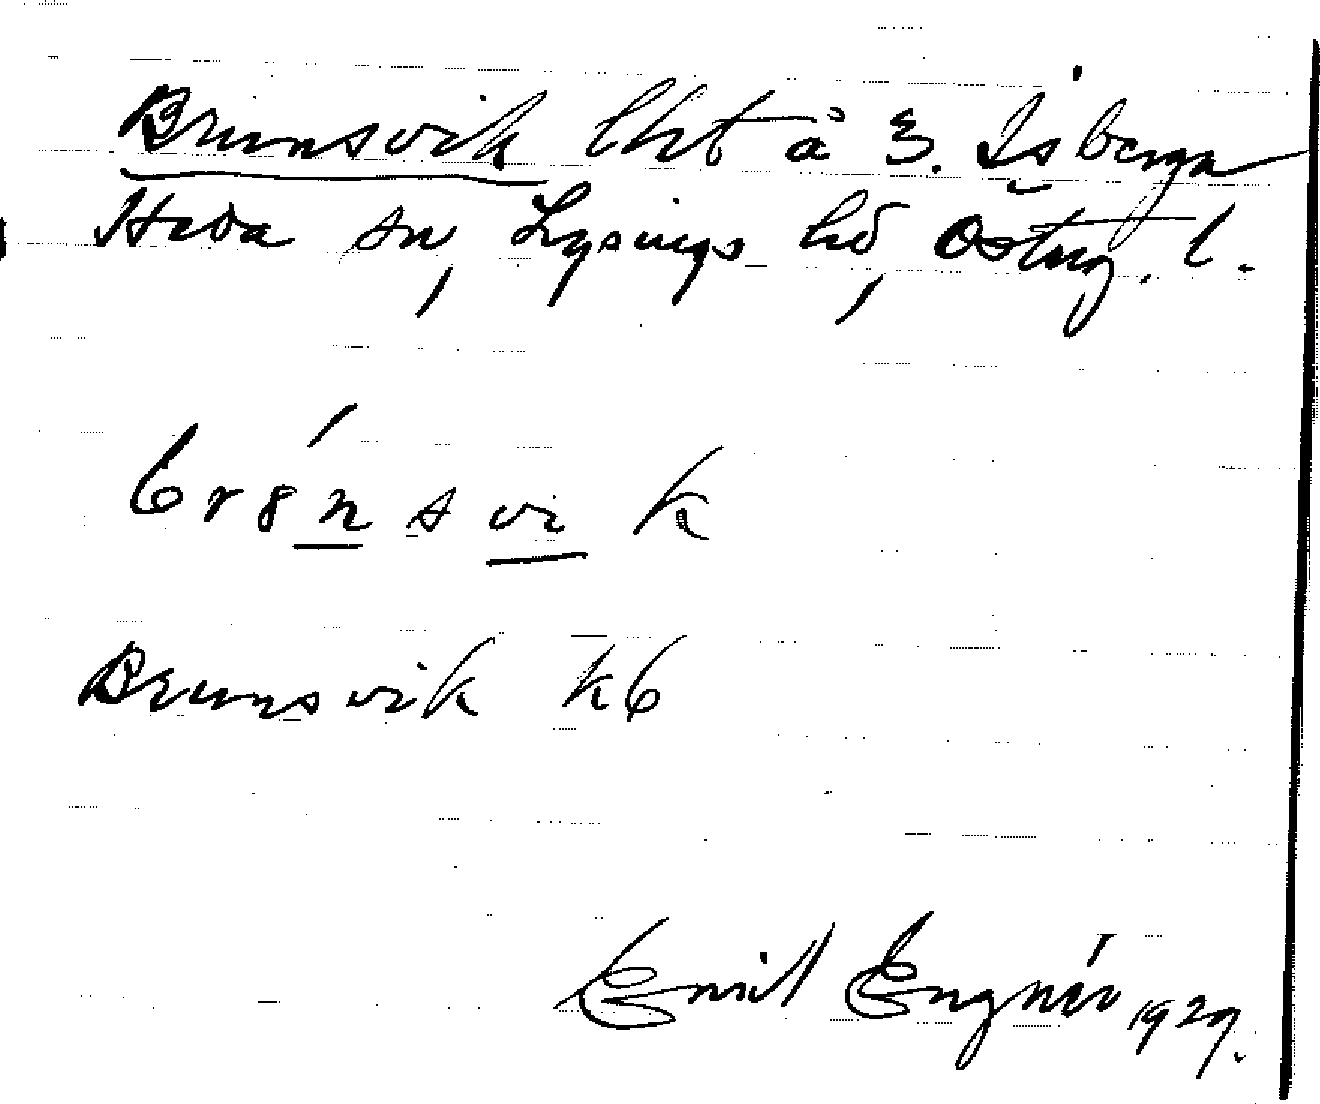 Brunsvik lht å 3. Isberga
Heda sn, Lysings hd, Österg. l.
br8́nsvik
Brunsvik kb
Emil Engnér 1929.